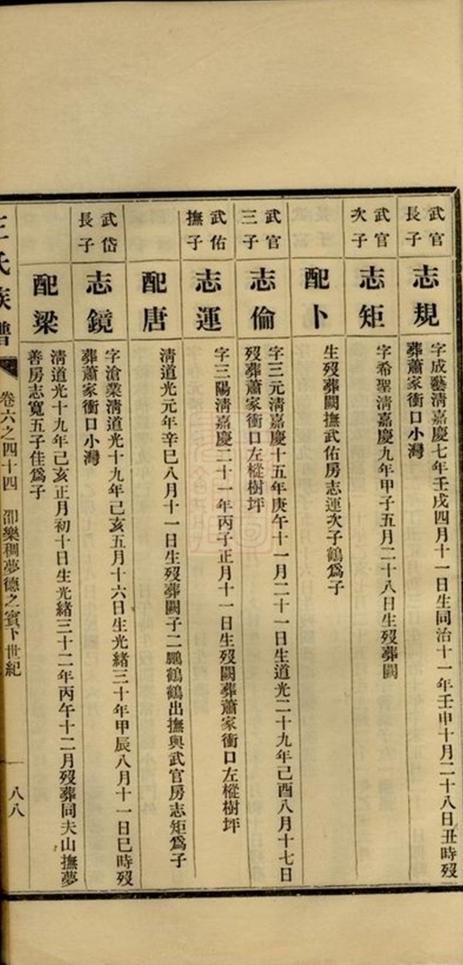 武官
長子
志規
字成藝清嘉慶七年壬戌四月十一日生同治十一年壬申十月二十八日丑時歿
葬蕭家衝口小灣
武官
次子
志矩
字希聖清嘉慶九年甲子五月二十八日生歿葬闕
配卜
生歿葬闕撫武佑房志運次子鶴為子
武官
三子
志倫
字三元清嘉慶十五年庚午十一月二十一日生道光二十九年己酉八月十七日
歿葬蕭家衝口左樅樹坪
武佑
撫子
志運
字三陽清嘉慶二十一年丙子正月十一日生歿闕葬蕭家衝口左樅樹坪
配唐
清道光元年辛巳八月十一日生歿葬闕子二鵬鶴鶴出撫與武官房志矩為子
武岱
長子
志鏡
字滄業清道光十九年己亥五月十六日生光緒三十年甲辰八月十一日巳時歿
葬蕭家衝口小灣
配梁
清道光十九年己亥正月初十日生光緒三十二年丙午十二月歿葬同夫山撫夢
善房志寬五子佳為子
王氏族譜
卷六之四十四
卲樂稠夢德之賓下世紀
八八